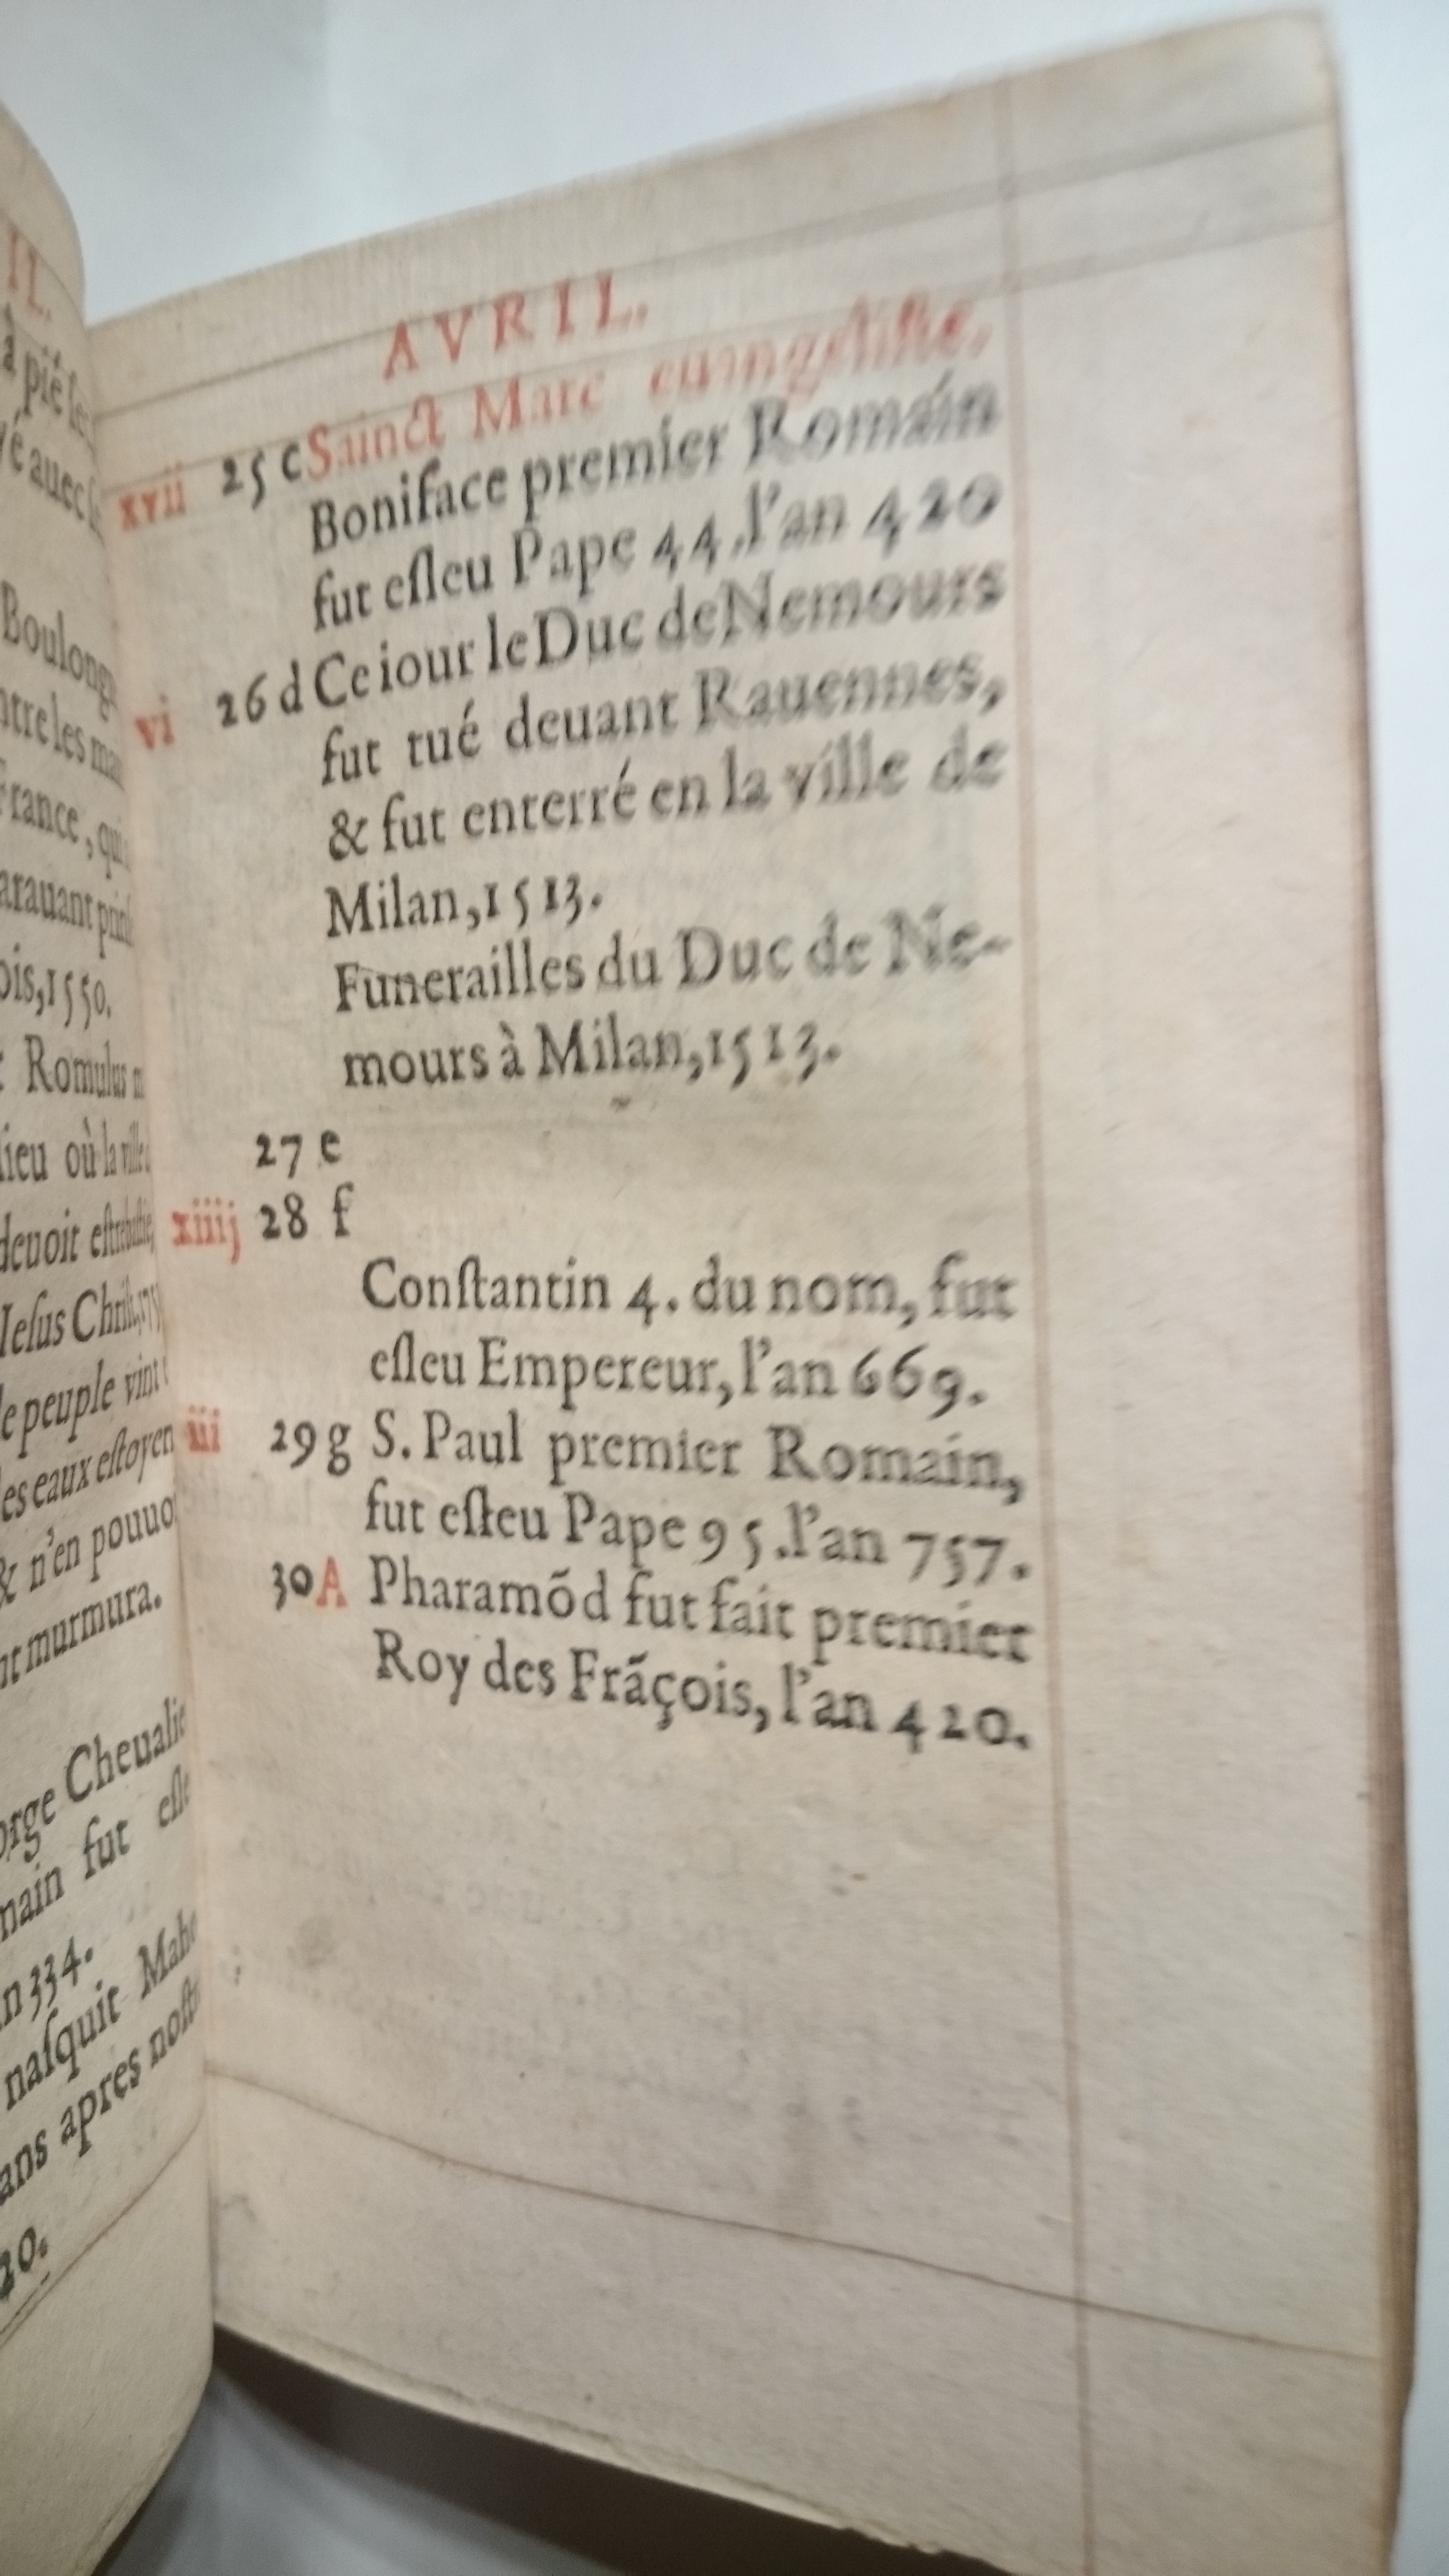 IL.
à pié
avec
Boulong
ntre les
France, qui
arauant
ois, 1550.
Romulus
lieu où la
deuoit
Iesus
le peuple vint
es eaux estoyen
& n'en pouuo
murmura.
orge Cheualie
main fut
n 334.
nasquit
ans apres
20.
AVRIL.
xvii 25 c Sainct Marc euangeliste,
Boniface premier Romain
fut esleu Pape 44. l'an 420
vi 26 d Ce iour le Duc de Nemours
fut tué deuant Rauennes,
& fut enterré en la ville de
Milan, 1513.
Funerailles du Duc de Ne-
mours à Milan, 1513.
27 e
xiiij 28 f
Constantin 4. du nom, fut
esleu Empereur, l'an 669.
iii 29 g S. Paul premier Romain,
fut esleu Pape 95. l'an 757.
30 A Pharamõd fut fait premier
Roy des Frãçois, l'an 420.